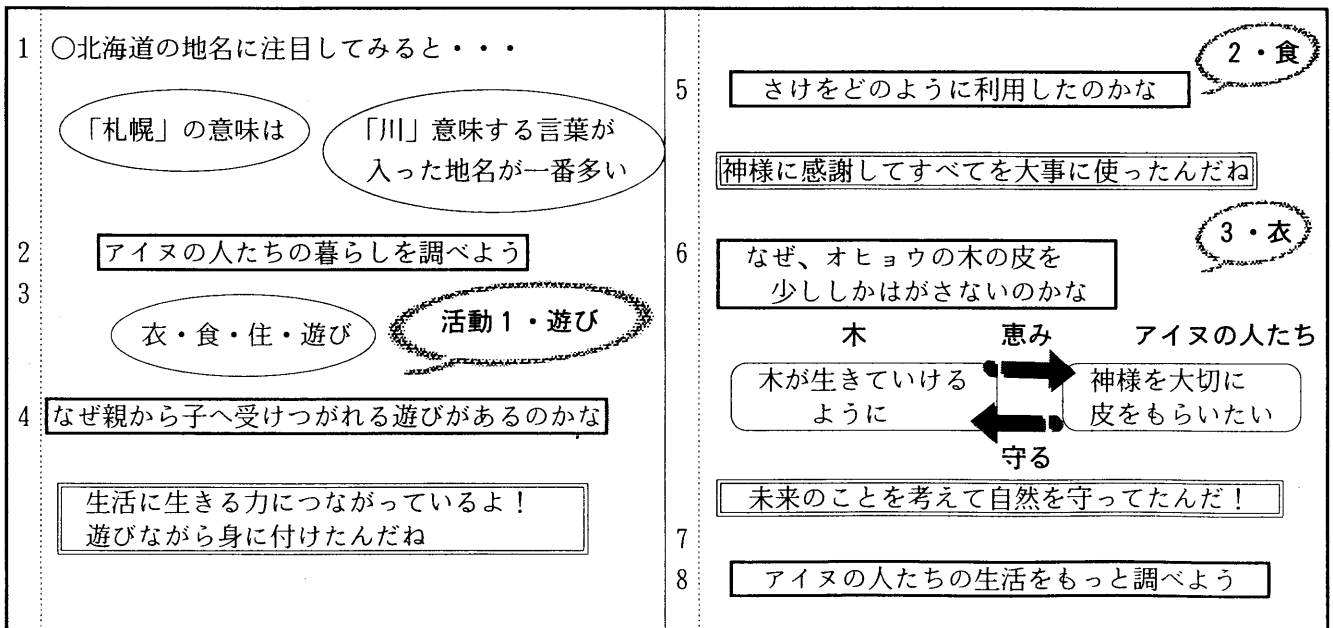 1 ○北海道の地名に注目してみると・・・
「札幌」の意味は
「川」意味する言葉が
入った地名が一番多い
2 アイヌの人たちの暮らしを調べよう
3
衣・食・住・遊び
活動1・遊び
4 なぜ親から子へ受けつがれる遊びがあるのかな
生活に生きる力につながっているよ!
遊びながら身に付けたんだね
2・食
5 さけをどのように利用したのかな
神様に感謝してすべてを大事に使ったんだね
3・衣
6 なぜ、オヒョウの木の皮を
少ししかはがさないのかな
木 恵み アイヌの人たち
木が生きていける
ように
神様を大切に
皮をもらいたい
守る
未来のことを考えて自然を守ってたんだ!
7
8 アイヌの人たちの生活をもっと調べよう